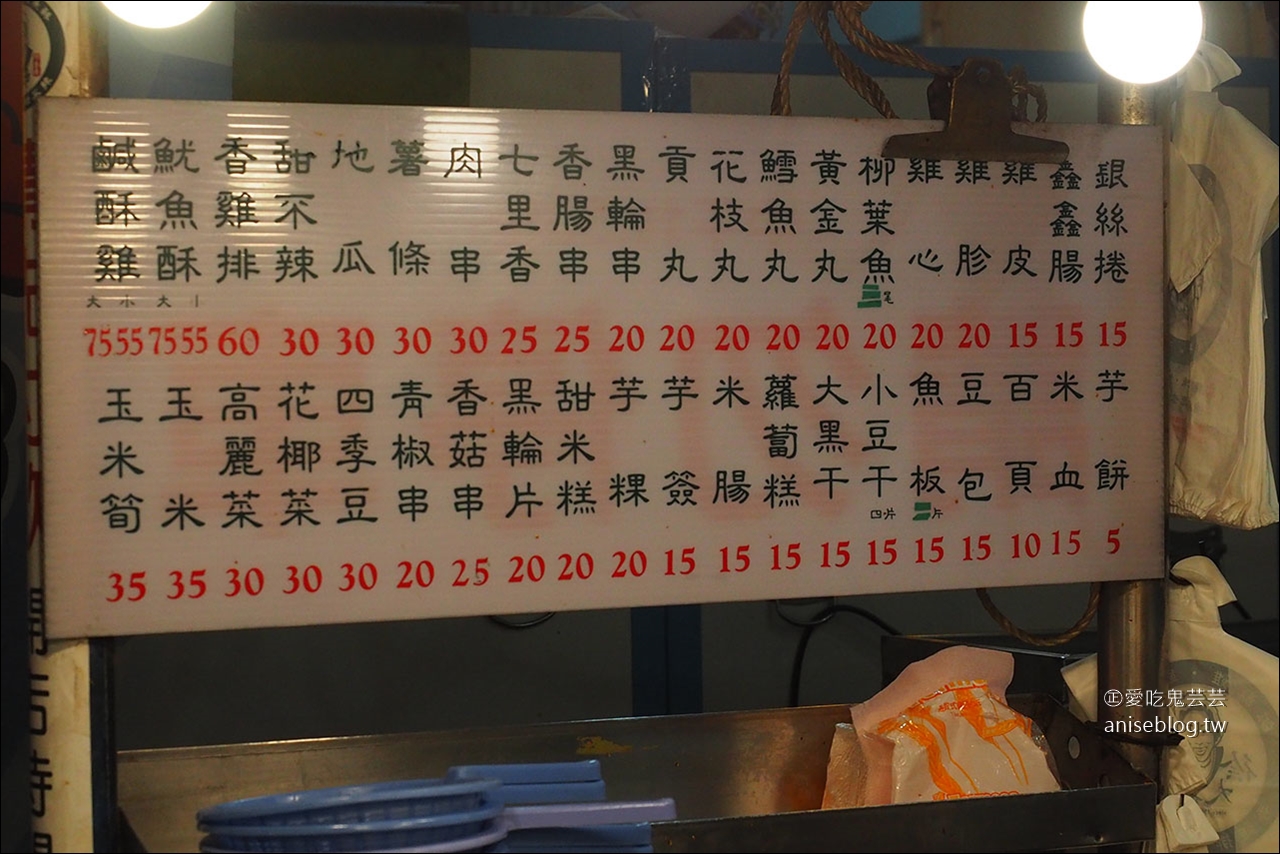 鹹酥雞 大 小 75 55
魷魚酥 大 小 75 55
香雞排 60
甜不辣 30
地瓜 30
薯條 30
肉串 30
七里香 25
香腸串 25
黑輪串 20
貢丸 20
花枝丸 20
鱈魚丸 20
黃金丸 20
柳葉魚 三尾 20
雞心 20
雞胗 20
雞皮 15
鑫鑫腸 15
銀絲捲 15
玉米筍 35
玉米 35
高麗菜 30
花椰菜 30
四季豆 30
青椒串 20
香菇串 25
黑輪片 20
甜米糕 20
芋粿 20
芋簽 15
米腸 15
蘿蔔糕 15
大黑干 15
小豆干 四片 15
魚板 三片 15
豆包 15
百頁 10
米血 15
芋餅 5
㊣愛吃鬼芸芸
aniseblog.tw